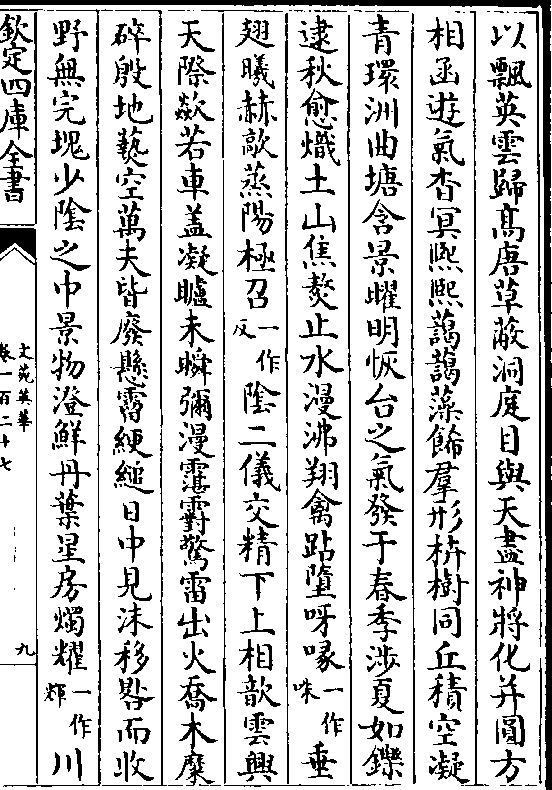 以飄英雲歸髙唐草蔽洞庭目與天盡神將化并圓方
相函遊氣杳冥熈熈藹藹藻餙羣形枿樹同丘積空凝
青環洲曲塘含景曜明恢台之氣發于春季渉夏如鑠
逮秋愈熾土山焦熬止水漫沸翔禽跕墮呀喙一作咮垂
翅曦赫歊蒸陽極召一作反陰二儀交精下上相歆雲興
天際欻若車盖凝矑未瞬彌漫霮䨴驚雷出火喬木糜
碎殷地爇空萬夫皆廢懸霤綆縋日中見沬移晷而收
野無完塊少陰之中景物澄鮮丹葉星房燭耀一作輝川
欽定四庫全書
文苑英華
卷一百二十七
九